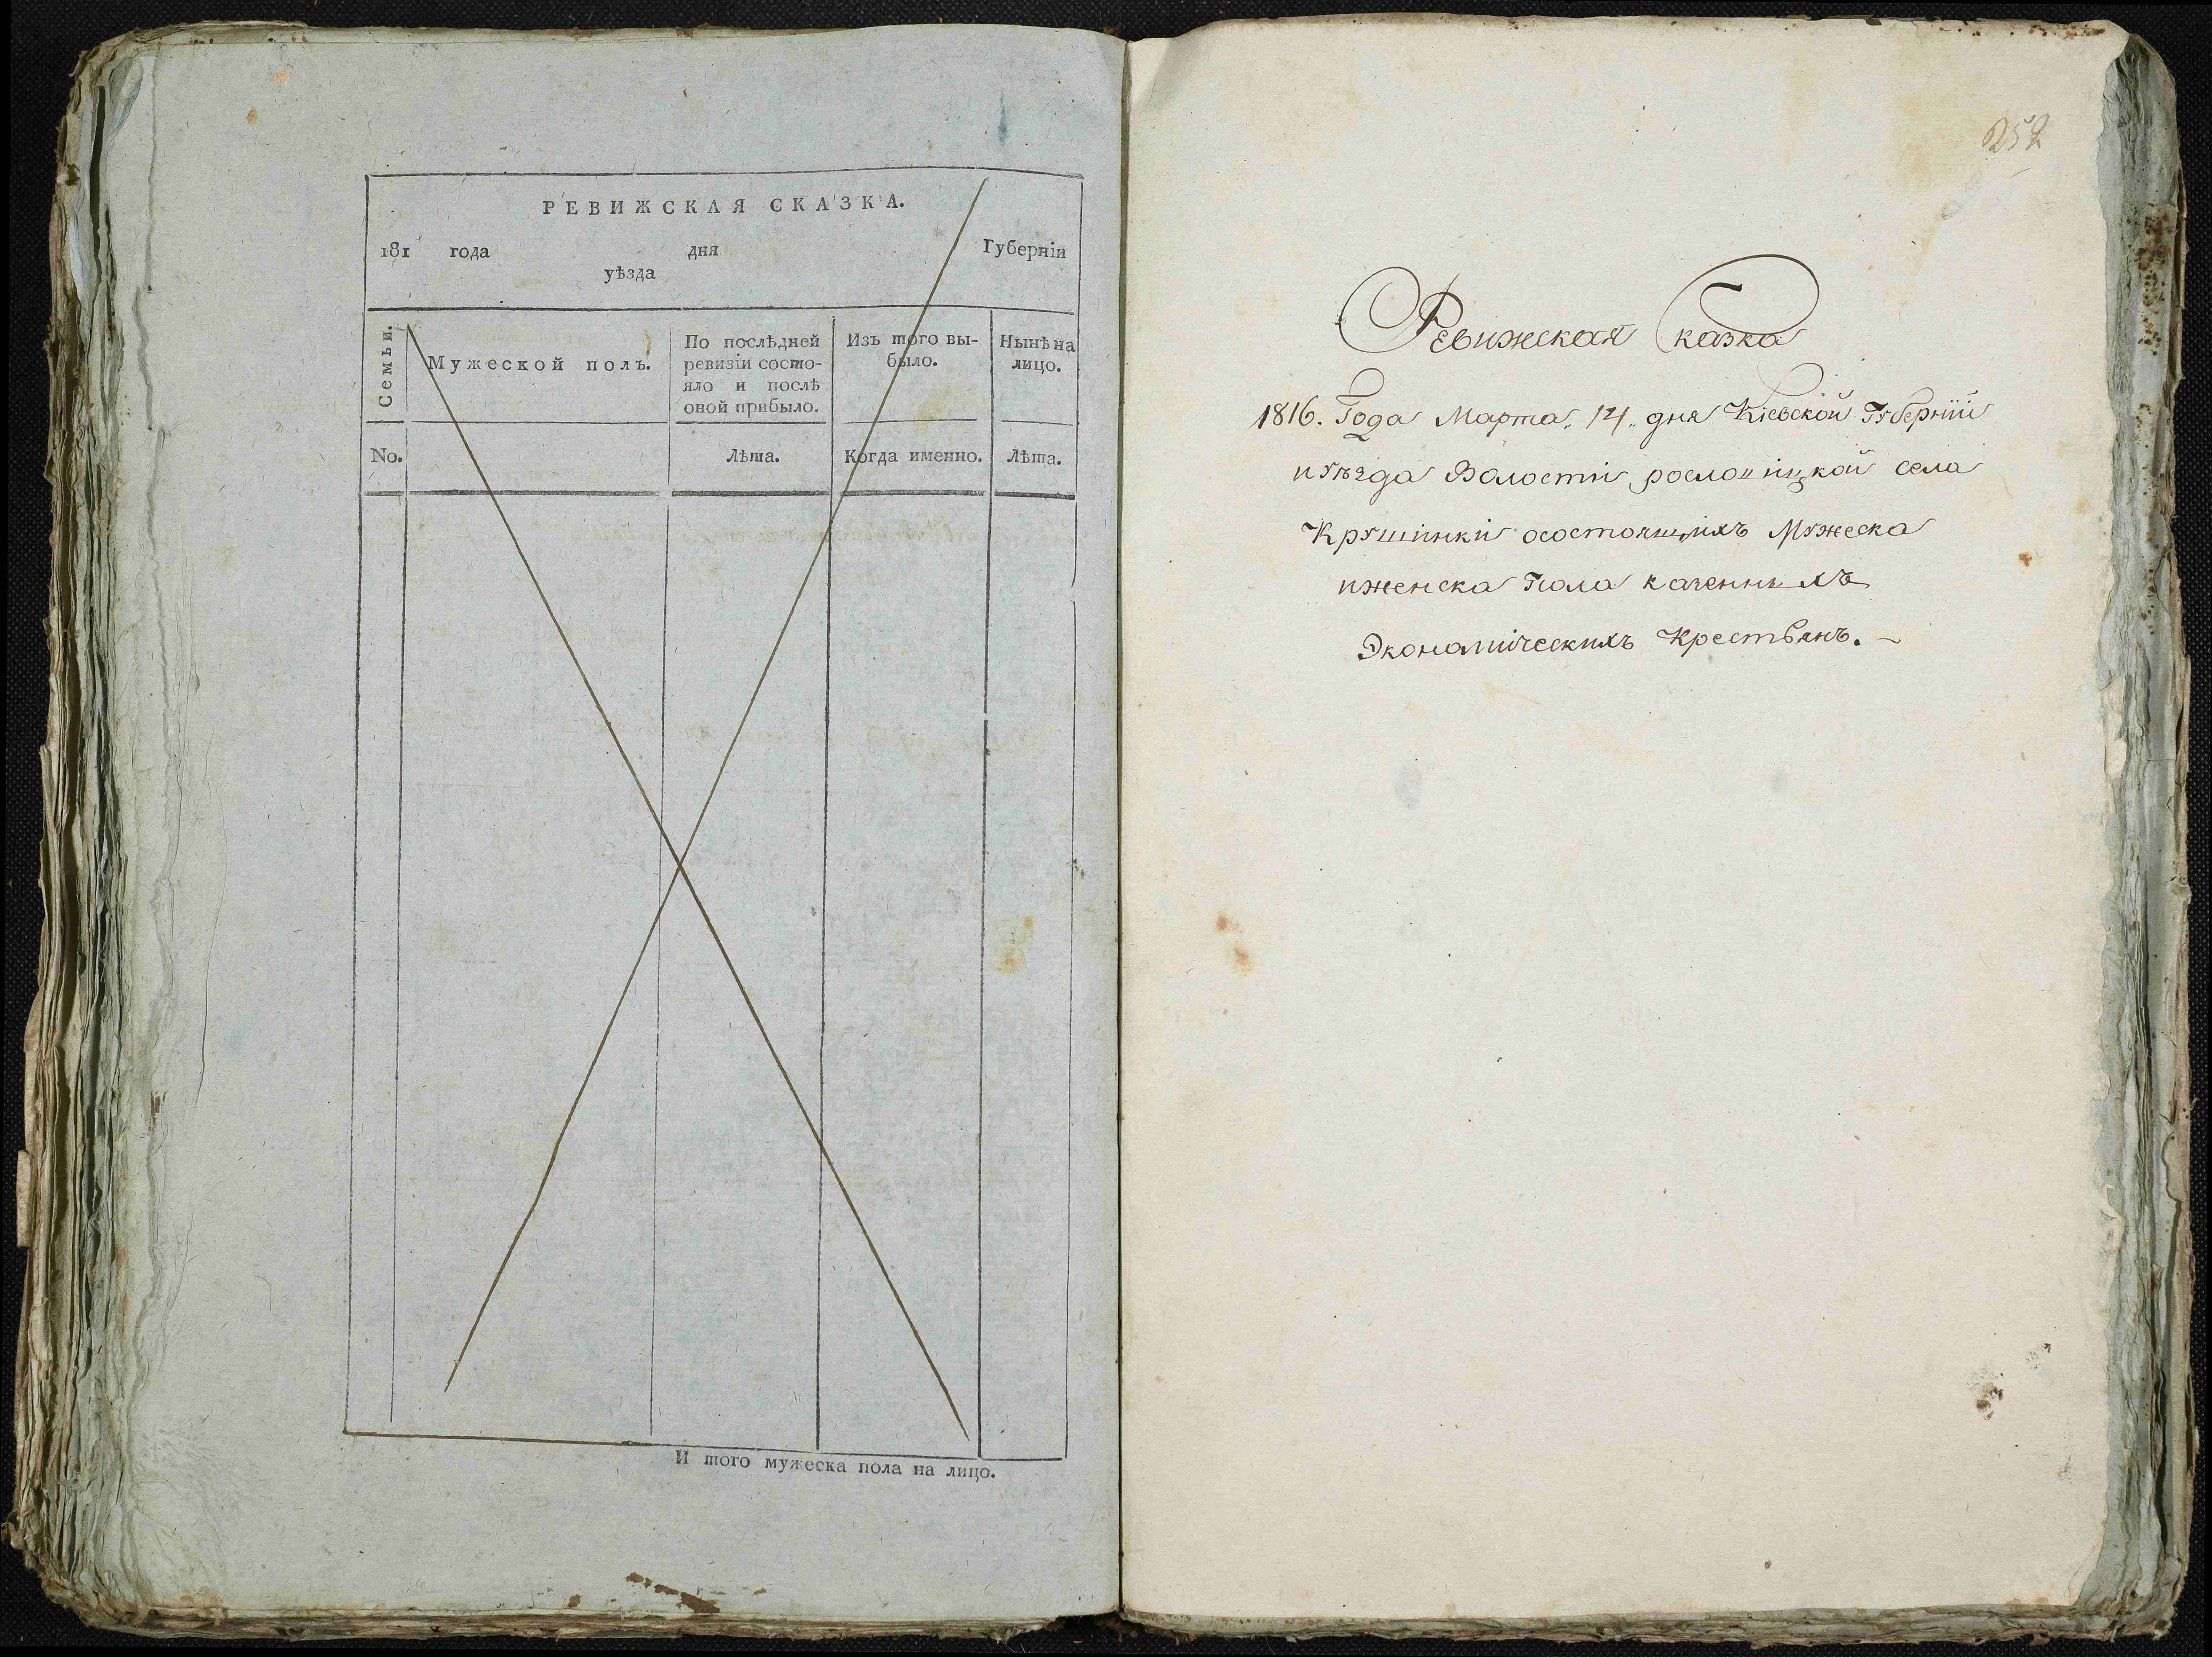 РЕВИЖСКАЯ СКАЗКА.
181 года дня Губернїи
уѣзда
Семьи.
Мужеской полъ.
По послѣдней
ревизїи состо-
яло и послѣ
оной прибыло.
Изъ того вы-
было.
Нынѣ на
лицо.
No.
Лѣта.
Когда именно.
Лѣта.
И того мужеска пола на лицо.
252
Ревижская Сказка
1816. Года Марта „14„ дня Кіевской Губерніи
иуѣзда Волости рословицкой села
Крушинки осостоящихъ Мужеска
иженска Пола казенныхъ
Экономическихъ Крестьянъ.